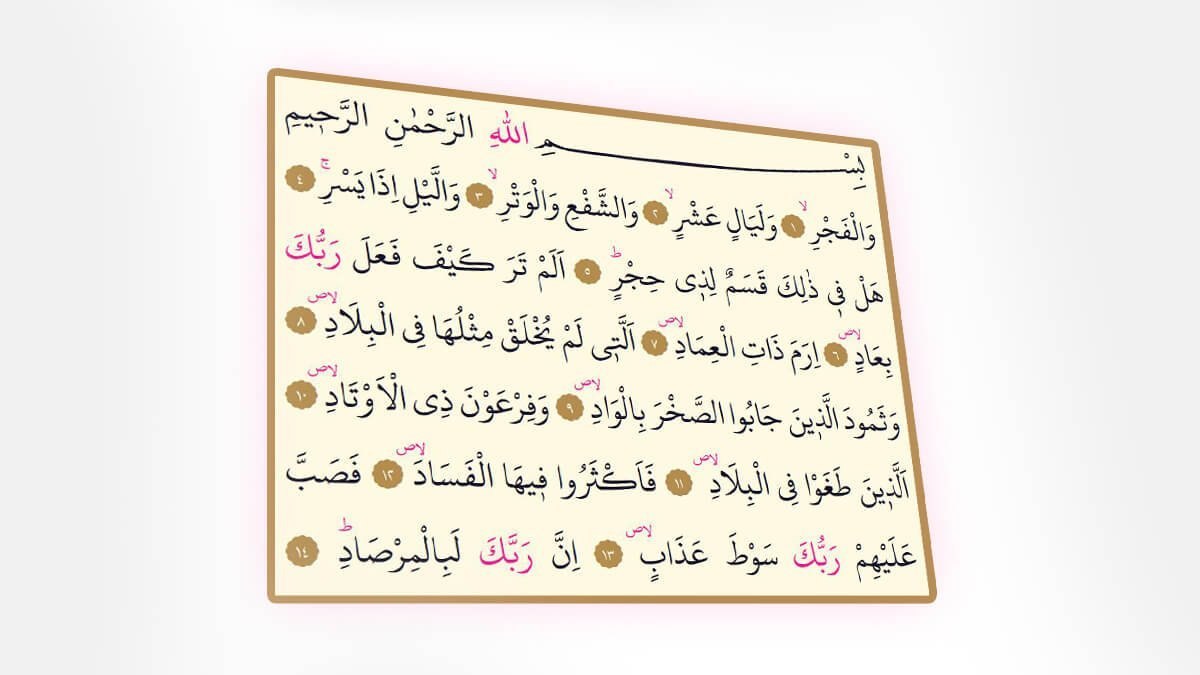 بِسْمِ اللّٰهِ الرَّحْمٰنِ الرَّحٖيمِ
وَالْفَجْرِۙ ﴿١﴾ وَلَيَالٍ عَشْرٍۙ ﴿٢﴾ وَالشَّفْعِ وَالْوَتْرِۙ ﴿٣﴾ وَالَّيْلِ اِذَا يَسْرِۚ ﴿٤﴾
هَلْ فٖي ذٰلِكَ قَسَمٌ لِذٖي حِجْرٍؕ ﴿٥﴾ اَلَمْ تَرَ كَيْفَ فَعَلَ رَبُّكَ
بِعَادٍۙࣕ ﴿٦﴾ اِرَمَ ذَاتِ الْعِمَادِۙࣕ ﴿٧﴾ اَلَّتٖي لَمْ يُخْلَقْ مِثْلُهَا فِي الْبِلَادِۙࣕ ﴿٨﴾
وَثَمُودَ الَّذٖينَ جَابُوا الصَّخْرَ بِالْوَادِۙࣕ ﴿٩﴾ وَفِرْعَوْنَ ذِي الْاَوْتَادِۙࣕ ﴿١٠﴾
اَلَّذٖينَ طَغَوْا فِي الْبِلَادِۙࣕ ﴿١١﴾ فَاَكْثَرُوا فٖيهَا الْفَسَادَۙࣕ ﴿١٢﴾ فَصَبَّ
عَلَيْهِمْ رَبُّكَ سَوْطَ عَذَابٍۙࣕ ﴿١٣﴾ اِنَّ رَبَّكَ لَبِالْمِرْصَادِؕ ﴿١٤﴾